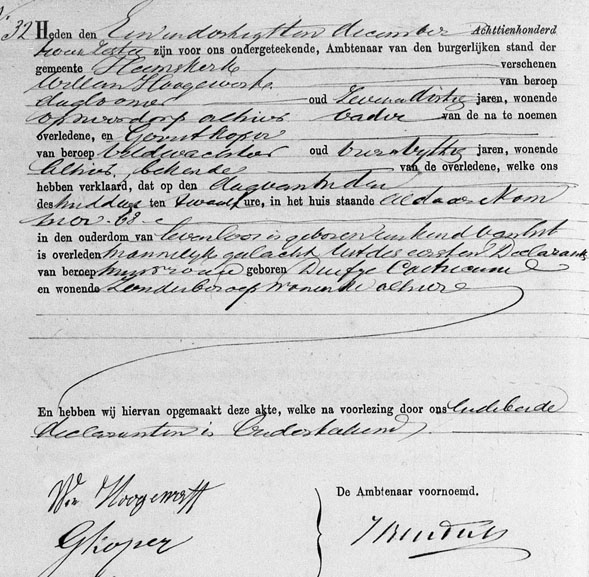 32 Heden den Een en dertigsten december Achttienhonderd
zijn voor ons ondergeteekende, Ambtenaar van den burgerlijken stand der
gemeente Heemskerk verschenen
Willem Hoogewerf van beroep
daglooner oud Zevenendertig jaren, wonende
op noorddorp alhier vader van de na te noemen
overledene, en Gerrit Koper
van beroep Veldwachter oud jaren, wonende
alhier, bekende van de overledene, welke ons
hebben verklaard, dat op den dag van heden
des middags ten twaalf ure, in het huis staande aldaar Nom
mer 68
in den ouderdom van levenloos is geboren een kind van het
is overleden mannelijk geslacht Uit des eersten Declarants
van beroep huisvrouw geboren Duifje Castricum
en wonende Zonder beroep wonende alhier
En hebben wij hiervan opgemaakt deze akte, welke na voorlezing door ons en beide
declaranten is Onderteekend
Wm Hoogewerff De Ambtenaar voornoemd.
GKoper